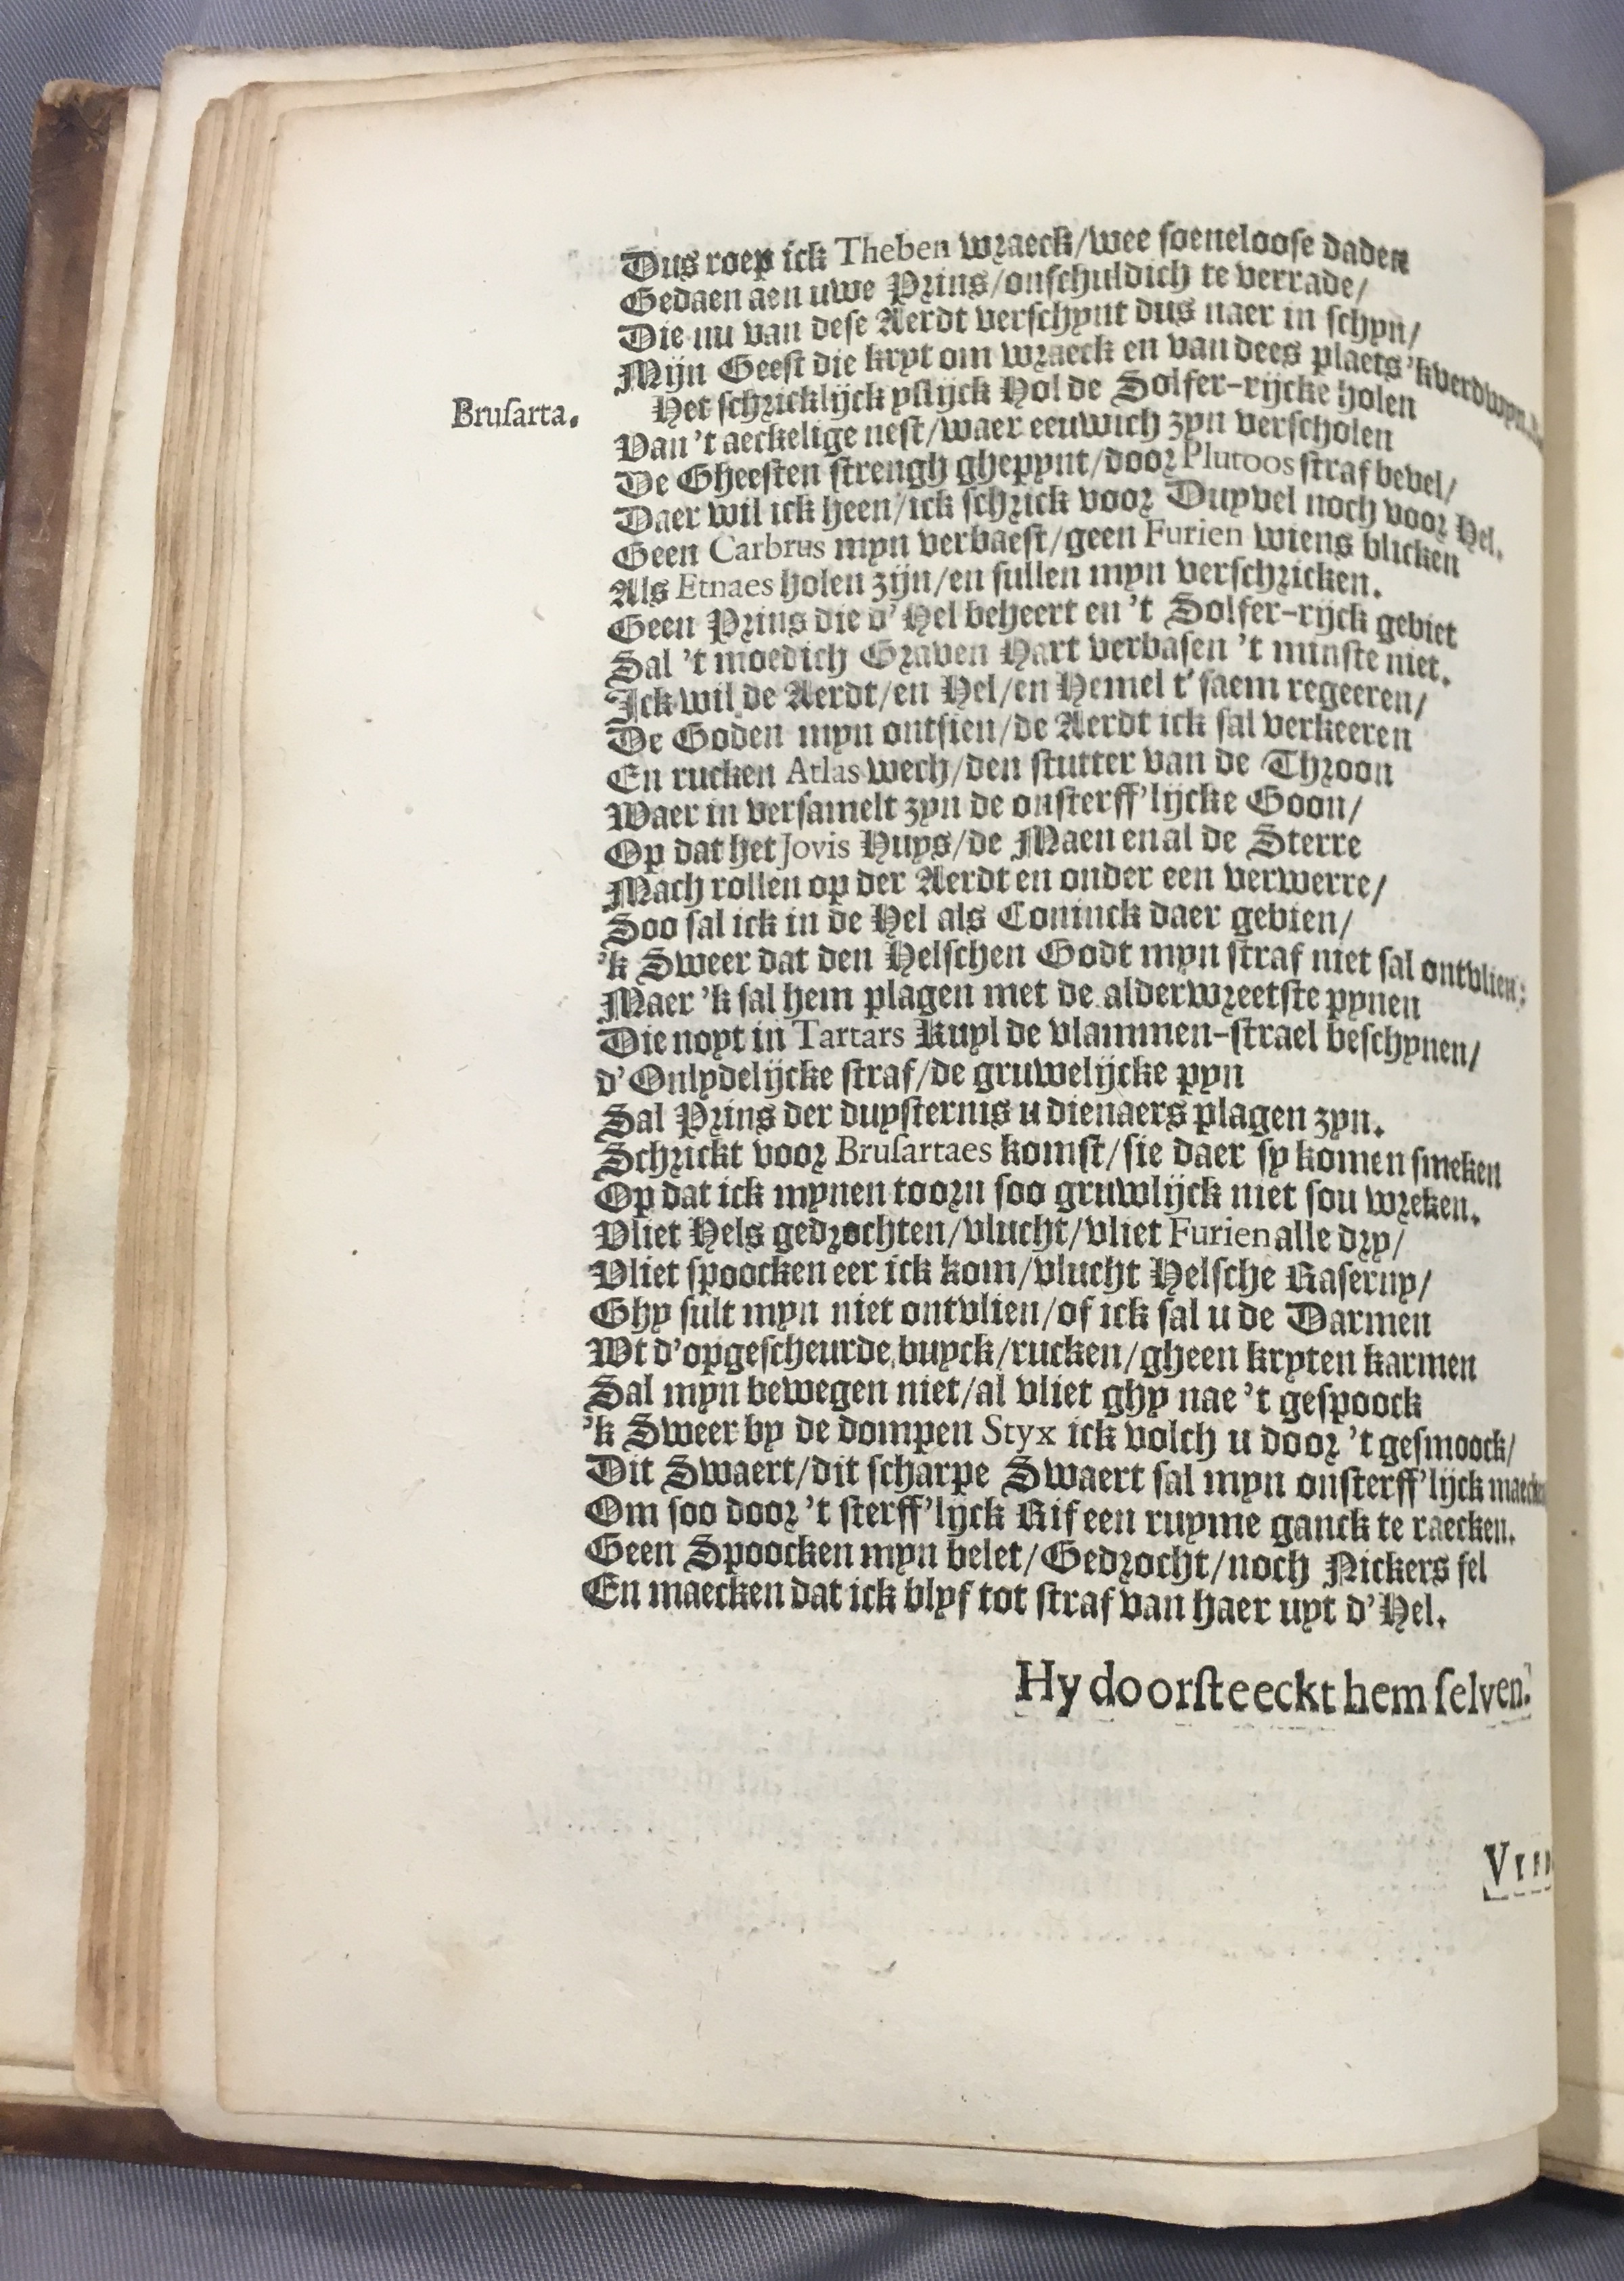 Dus roep ick Theben wraeck/wee soeneloose daden
Gedaen aen uwe Prins/onschuldich te verrade/
Die nu van dese Aerdt verschynt dus naer in schyn/
Mijn Geest die kryt om wraeck en van dees plaets 'k verdwyn.
Brusarta. Het schricklijck yslijck Hol de Solfer-rijcke holen
Van 't aeckelige nest/waer eeuwich zyn verscholen
De Gheesten strengh ghepynt/door Plutoos straf bevel/
Daer wil ick heen/ick schrick voor Duyvel noch voor Hel.
Geen Carbrus myn verbaest/geen Furien wiens blicken
Als Etnaes holen zijn/en sullen myn verschricken.
Geen Prins die d'Hel beheert en 't Solfer-rijck gebiet
Sal 't moedich Graven Hart verbasen 't minste niet.
Ick wil de Aerdt/en Hel/en Hemel t'saem regeeren/
De Goden myn ontsien/de Aerdt ick sal verkeeren
En rucken Atlas wech/den stutter van de Throon
Waer in versamelt zyn de onsterff'lijcke Goon/
Op dat het Jovis Huys/de Maen en al de Sterre
Mach rollen op der Aerdt en onder een verwerre/
Soo sal ick in de Hel als Coninck daer gebien/
'k Sweer dat den Helschen Godt myn straf niet sal ontvlien;
Maer 'k sal hem plagen met de alderwreetste pynen
Die noyt in Tartars Kuyl de vlammen-strael beschynen/
d'Onlydelijcke straf/de gruwelijcke pyn
Sal Prins der duysternis u dienaers plagen zyn.
Schrickt voor Brusartaes komst/sie daer sy komen smeken
Op dat ick mynen toorn soo gruwlijck niet sou wreken.
Vliet Hels gedrochten/vlucht/vliet Furien alle dry/
Vliet spoocken eer ick kom/vlucht Helsche Raserny/
Ghy sult myn niet ontvlien/of ick sal u de Darmen
Wt d'opgescheurde buyck/rucken/gheen kryten karmen
Sal myn bewegen niet/al vliet ghy nae 't gespoock
'k Sweer by de dompen Styx ick volch u door 't gesmoock/
Dit Swaert/dit scharpe Swaert sal myn onsterff'lijck maecken
Om soo door 't sterff'lijck Rif een ruyme ganck te raecken.
Geen Spoocken myn belet/Gedrocht/noch Nickers fel
En maecken dat ick blyf tot straf van haer uyt d'Hel.
Hy doorsteeckt hem selven.